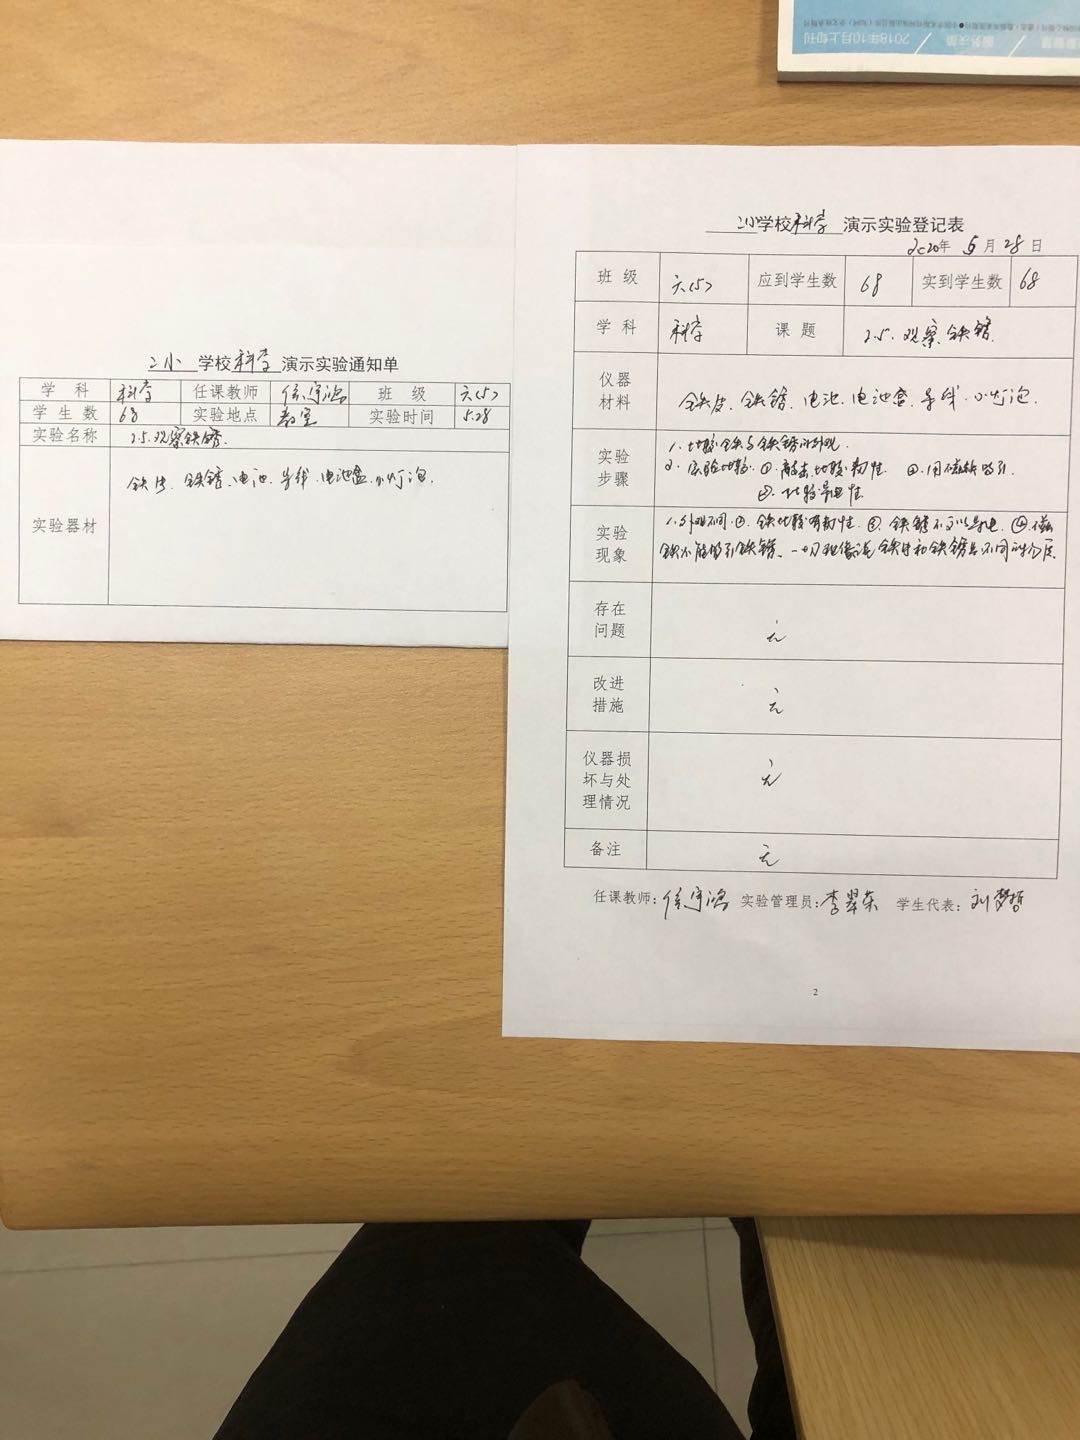 2018年10月上旬刊
二小 学校 科学 演示实验通知单
学 科 科学 任课教师 班 级 六(5)
学 生 数 68 实验地点 教室 实验时间 5.28
实验名称 2.5.观察铁锈.
实验器材 铁片、铁锈、电池、导线、电池盒、小灯泡.
二小学校科学 演示实验登记表
2020年 5 月 28 日
班 级 六(5) 应到学生数 68 实到学生数 68
学 科 科学 课 题 2.5.观察铁锈.
仪器材料 铁皮、铁锈、电池、电池盒、导线、小灯泡.
实验步骤 1.比较铁与铁锈的外观.
2.实验比较.①敲击比较韧性. ②用磁铁吸引.
③.比较导电性
实验现象 1.外观不同.②.铁比较有韧性.③.铁锈不可以导电.④磁
铁不能吸引铁锈.一切现象说 铁片和铁锈是不同的物质
存在问题 无
改进措施 无
仪器损坏与处理情况 无
备注 无
任课教师: 实验管理员:李翠东 学生代表:刘梦哲
2